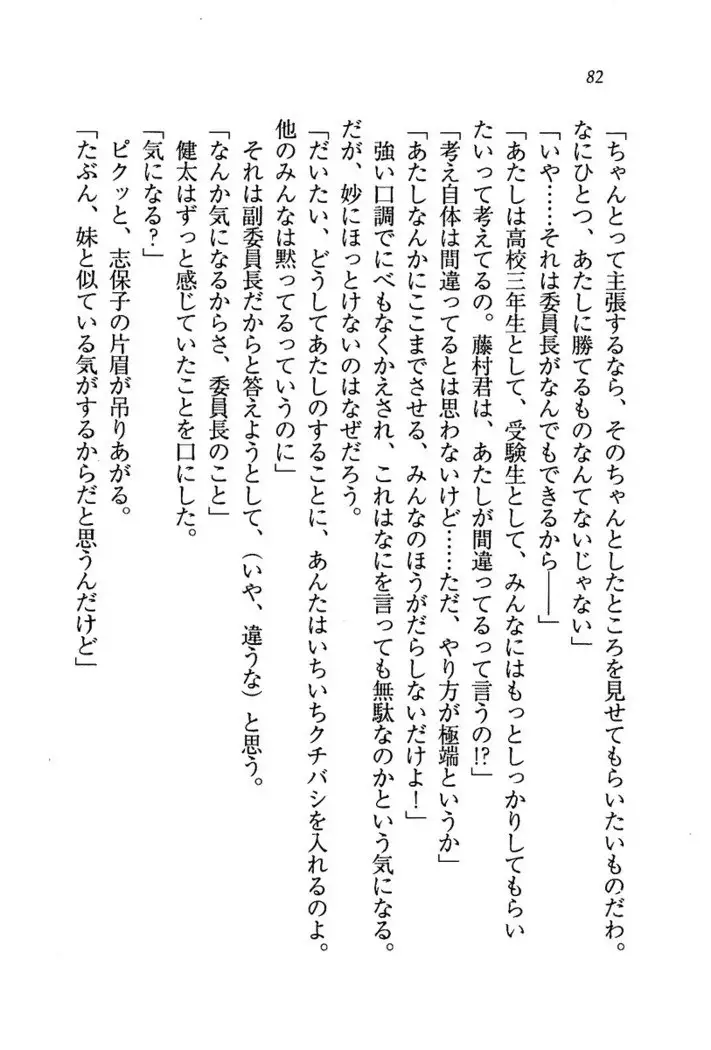 82
「ちゃんとって主張するなら、そのちゃんとしたところを見せてもらいたいものだわ。
なにひとつ、あたしに勝てるものなんてないじゃない」
「いや……それは委員長がなんでもできるから――」
「あたしは高校三年生として、受験生として、みんなにはもっとしっかりしてもらい
たいって考えてるの。藤村君は、あたしが間違ってるって言うの!?」
「考え自体は間違ってるとは思わないけど……ただ、やり方が極端というか」
「あたしなんかにここまでさせる、みんなのほうがだらしないだけよ！」
強い口調でにべもなくかえされ、これはなにを言っても無駄なのかという気になる。
だが、妙にほっとけないのはなぜだろう。
「だいたい、どうしてあたしのすることに、あんたはいちいちクチバシを入れるのよ。
他のみんなは黙ってるっていうのに」
それは副委員長だからと答えようとして、（いや、違うな）と思う。
「なんか気になるからさ、委員長のこと」
健太はずっと感じていたことを口にした。
「気になる？」
ピクッと、志保子の片眉が吊りあがる。
「たぶん、妹と似ている気がするからだと思うんだけど」